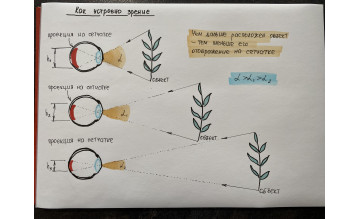 Как устроено зрение
проекция на сетчатке
Чем дальше расположен объект
- тем меньше его
отображение на сетчатке
h₁
α
объект
α > α₁ > α₂
проекция на сетчатке
объект
проекция на сетчатке
объект